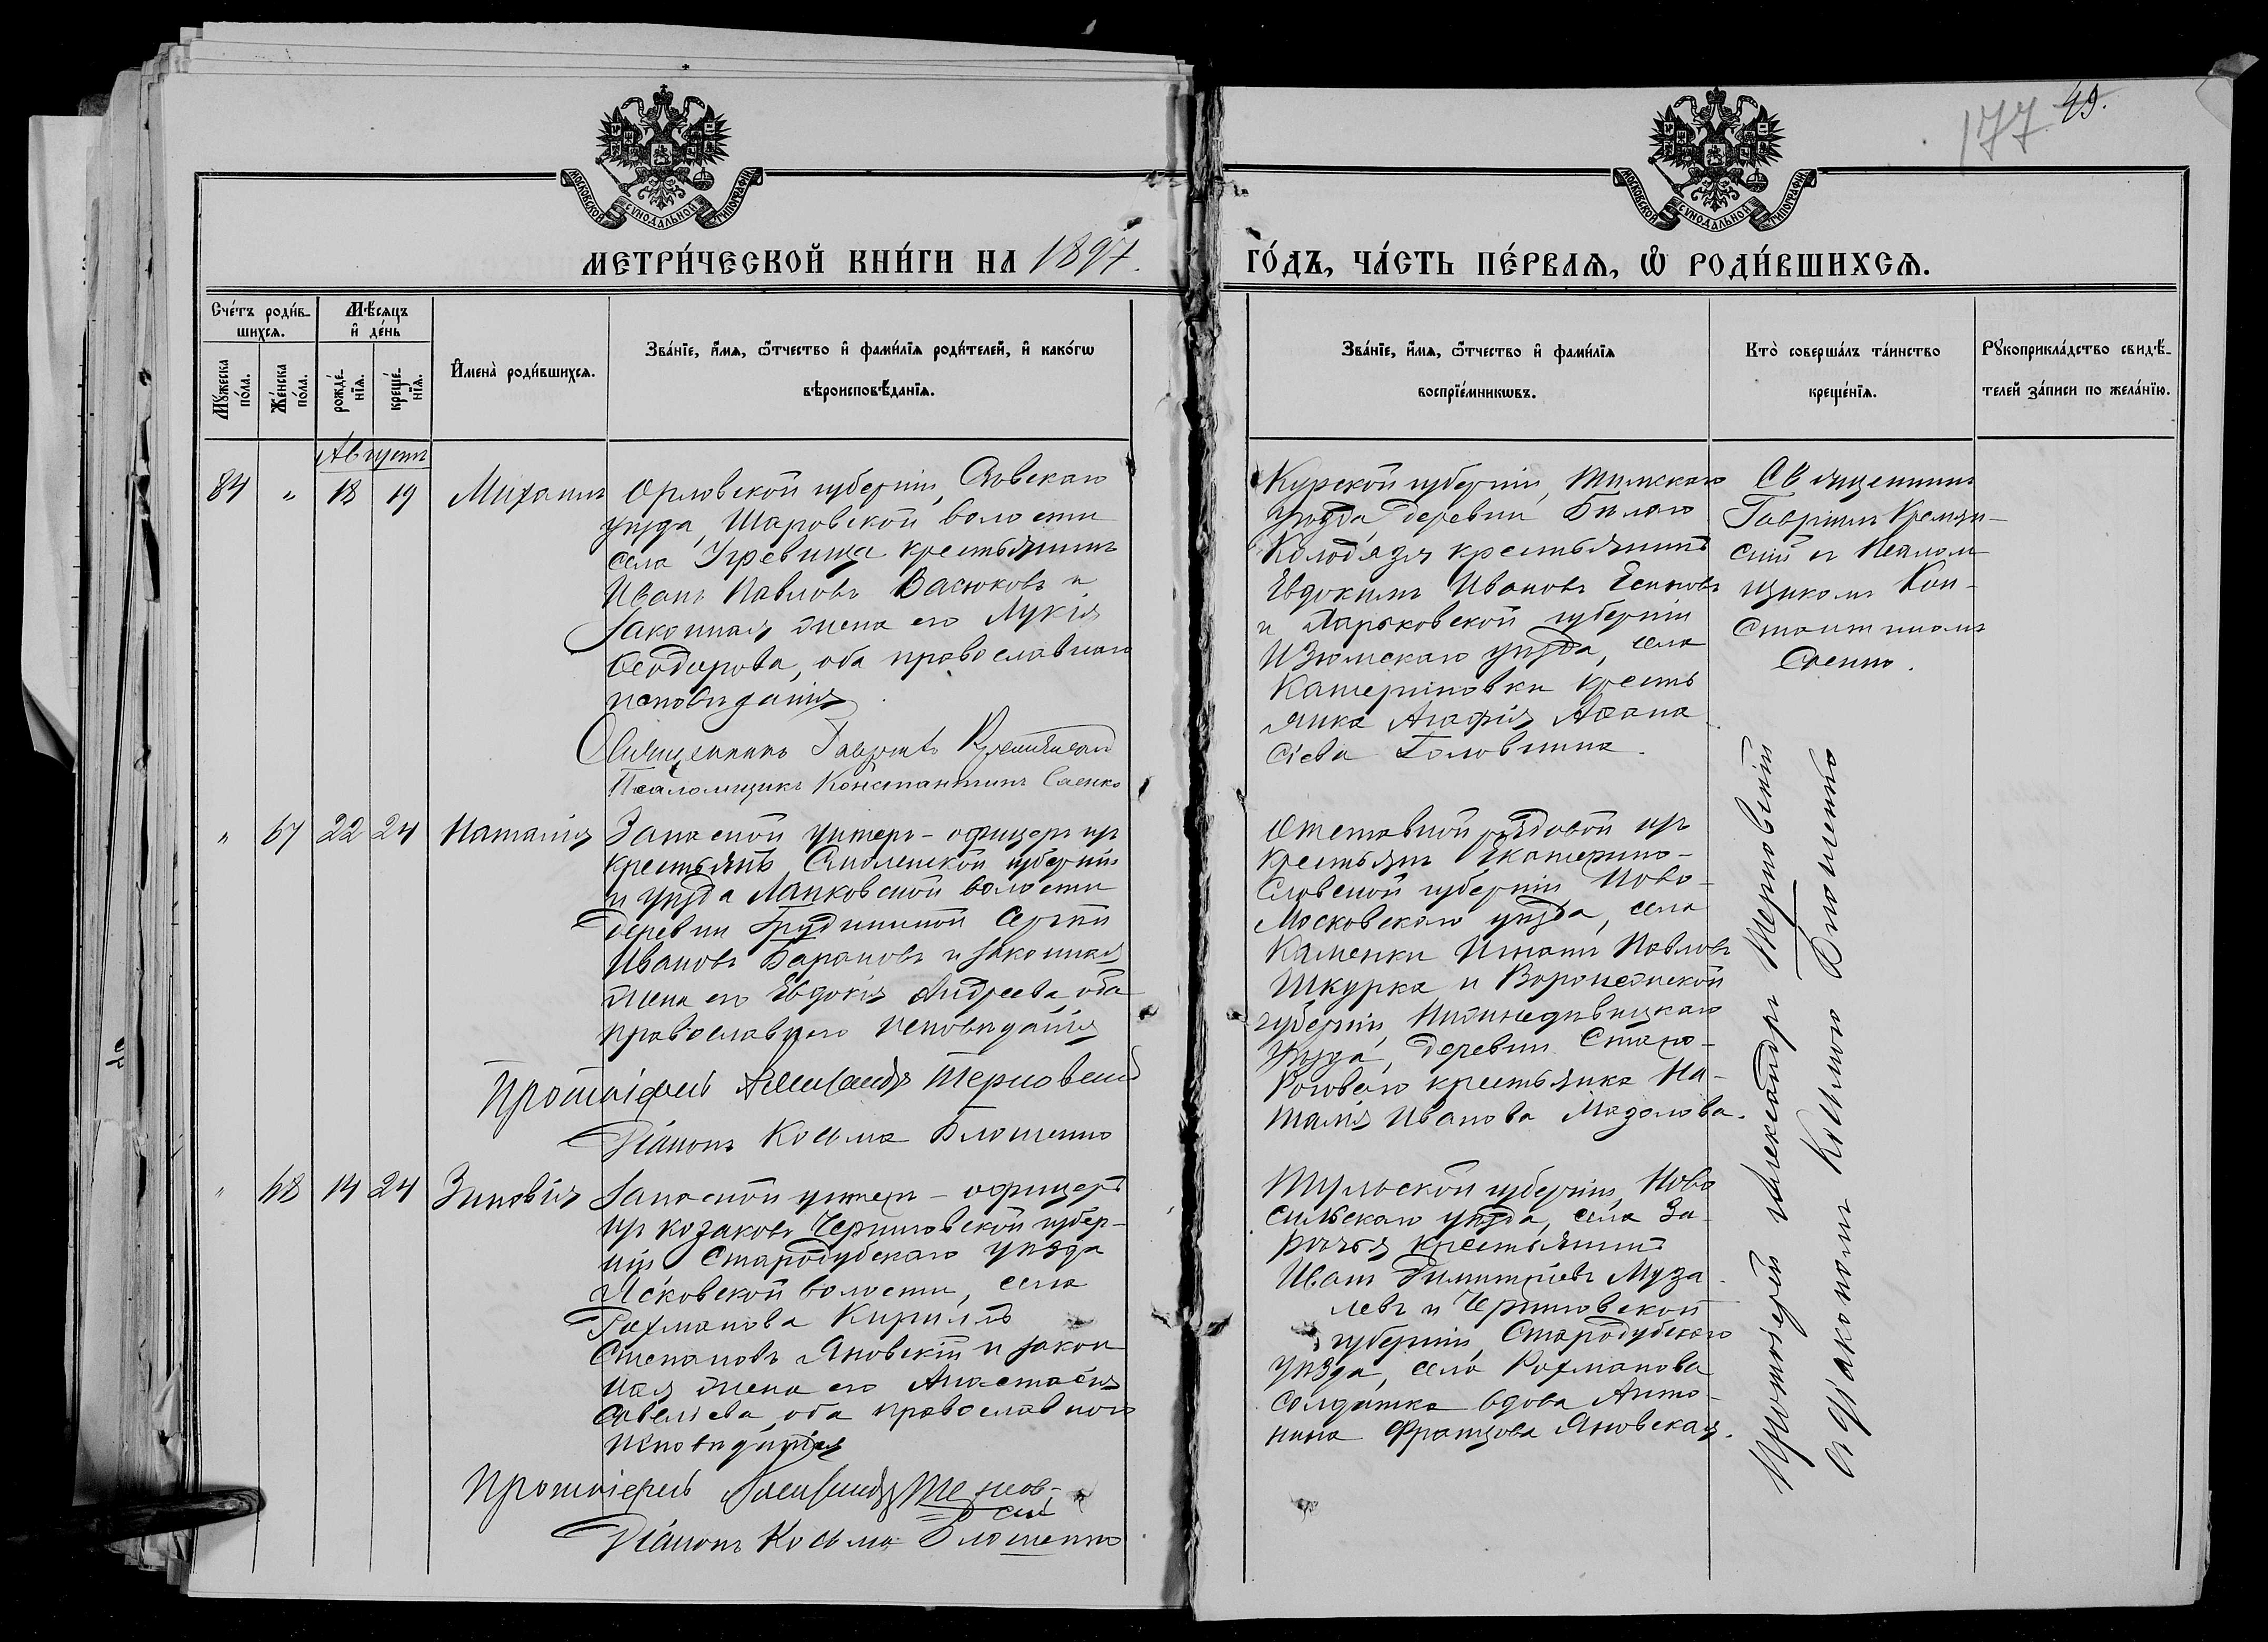 177 49.
МОСКОВСКОЙ СѴНОДАЛЬНОЙ ТИПОГРАФІИ
МОСКОВСКОЙ СѴНОДАЛЬНОЙ ТИПОГРАФІИ
МЕТРИ́ЧЕСКОЙ КНИ́ГИ НА 1897.
ГО́ДЪ, ЧА́СТЬ ПЕ́РВАЯ, Ѡ РОДИ́ВШИХСЯ.
Сче́тъ роди́в-
шихся.
Мꙋжеска по́ла.
Же́нска по́ла.
Мѣ́сяцъ
и де́нь
рожде́-
нїя.
креще́-
нїя.
Имена̀ роди́вшихся.
Зва́нїе, и́мя, ѻ҆́тчество и фами́лїя роди́телей, и како́гѡ
вѣроисповѣ́данїя.
Зва́нїе, и́мя, ѻ҆́тчество и фами́лїя
воспрїе́мникѡвъ.
Кто̀ соверша́лъ та́инство
креще́нїя.
Рꙋкоприкла́дство свидѣ́-
телей за́писи по жела́нїю.
Августъ
84 " 18 19 Михаилъ
Орловской губерніи, Сѣвскаго
уѣзда, Шаровской волости
села Угревища крестьянинъ
Иванъ Павловъ Васюковъ и
законная жена его Лукія
Ѳеодорова, оба православнаго
исповѣданія
Священникъ Гавріилъ Кремянскій
Псаломщикъ Константинъ Саенко
Курской губерніи, Тимскаго
уѣзда, деревни Бѣлаго
Колодязя крестьянинъ
Евдокимъ Ивановъ Есиковъ
и Харьковской губерніи
Изюмскаго уѣзда, села
Катериновки кресть
янка Агафія Аѳана
сіева Головнина.
Священникъ
Гавріилъ Кремян-
скій съ Псалом
щикомъ Кон-
стантиномъ
Саенко.
" 67 22 24 Наталія
Запасной унтеръ-офицеръ изъ
крестьянъ Смоленской губерніи
и уѣзда Лапковской волости
деревни Грудининой Сергѣй
Ивановъ Барановъ и законная
жена его Евдокія Андреева, оба
православнаго исповѣданія
Протоіерей Александръ Терновскій
Діаконъ Косьма Блошенко
Отставной рядовой изъ
крестьянъ Екатерино-
славской губерніи Ново-
московскаго уѣзда, села
Каменки Игнатъ Павловъ
Шкурка и Воронежской
губерніи, Нижнедѣвицкаго
уѣзда, деревни
крестьянка На-
талія Иванова Мазалова.
" 68 14 24 Зиновія
Запасной унтеръ-офицеръ
изъ козаковъ Черниговской губер-
ніи Стародубскаго уѣзда
волости, села
Рахманова Кириллъ
Степановъ Яновскій и закон
ная жена его Анастасія
Савеліева, оба православнаго
исповѣданія
Протоіерей Александръ Тернов-
скій
Діаконъ Косьма Блошенко
Тульской губерніи, Ново
сильскаго уѣзда, села За-
рѣчья крестьянинъ
Иванъ Димитріевъ Муза-
левъ и Черниговской
губерніи, Стародубскаго
уѣзда, села Рахманова
солдатка вдова Анто-
нина Францова Яновская.
Протоіерей Александръ Терновскій
съ Діакономъ Косьмою Блошенко